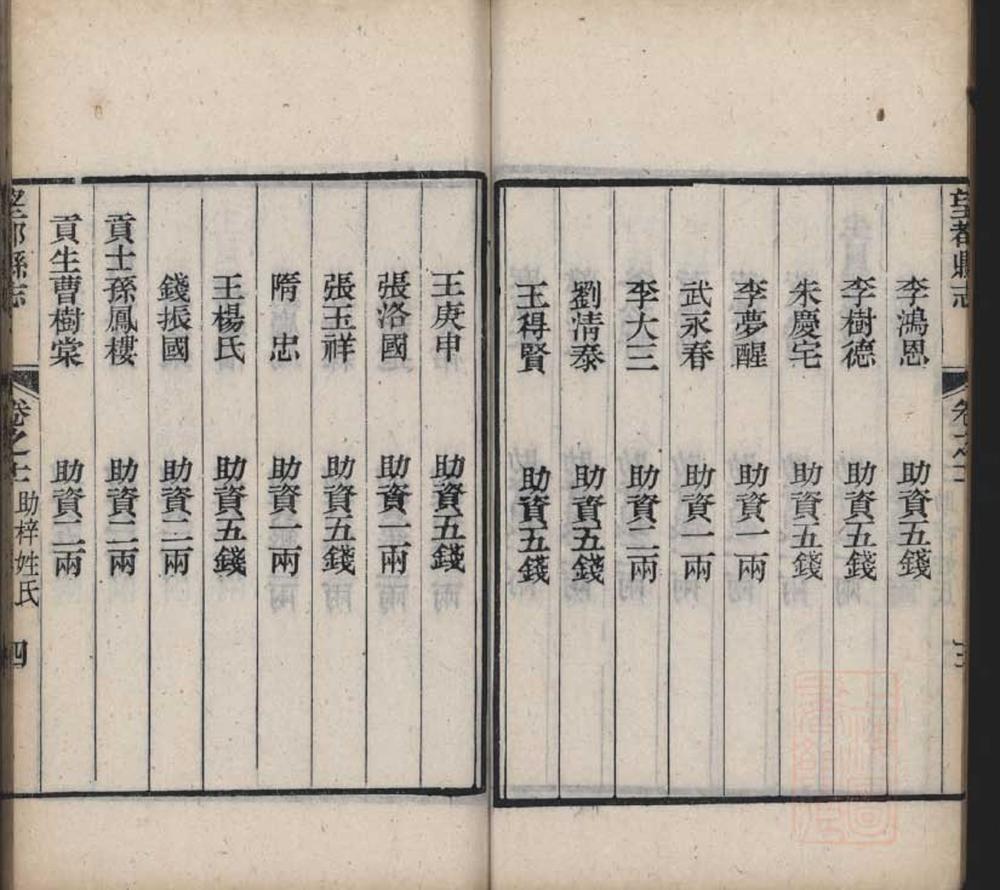 望都縣志
李鴻恩 助資五錢
李樹德 助資五錢
朱慶宅 助資五錢
李夢醒 助資一兩
武永春 助資一兩
李大三 助資二兩
劉清泰 助資五錢
王得賢 助資五錢
王庚申 助資五錢
張洛國 助資一兩
張玉祥 助資五錢
隋忠 助資一兩
王楊氏 助資五錢
錢振國 助資二兩
貢士孫鳳樓 助資二兩
貢生曹樹棠 助資二兩
望都縣志 卷之十 助梓姓氏 四